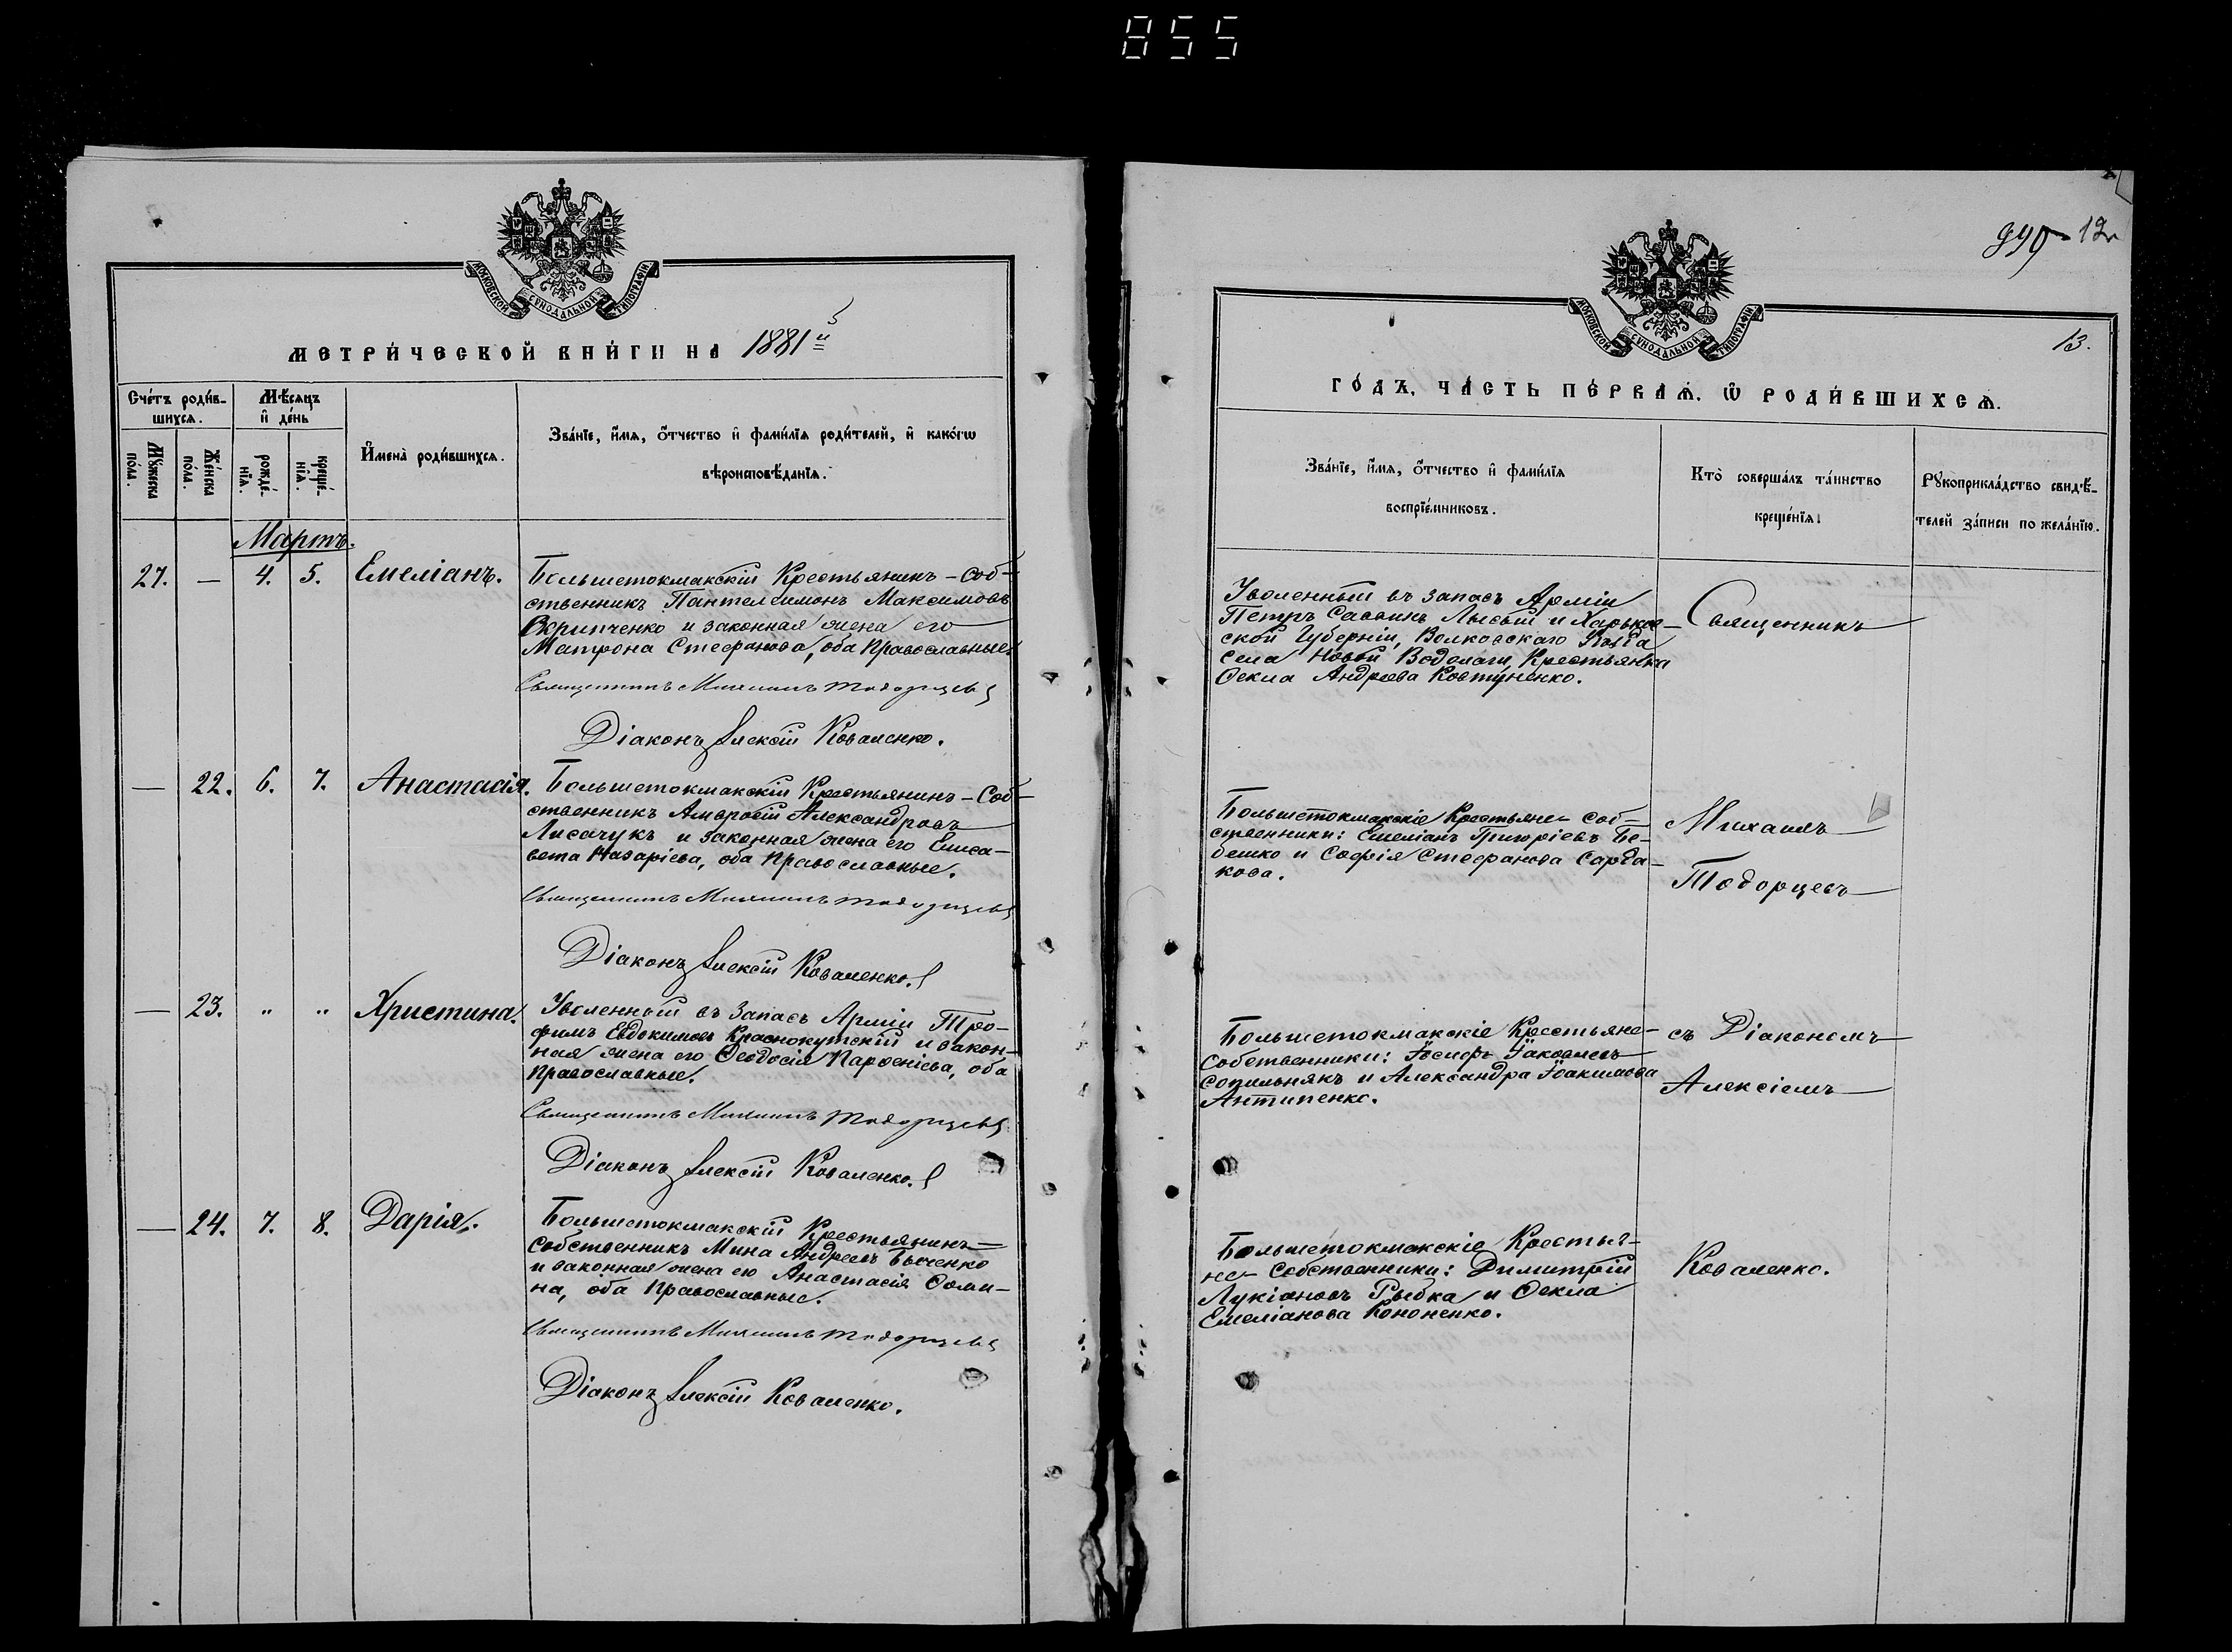 855
990 12
МОСКОВСКОЙ СѴНОДАЛЬНОЙ ТИПОГРАФІИ
МЕТРИ́ЧЕСКОЙ КНИ́ГИ НА 1881й
Сче́тъ роди́в-
шихся.
Мѣ́сяцъ
и҆ де́нь
Мꙋ́жеска
по́ла.
Же́нска
по́ла.
рожде́-
нїѧ.
креще́-
нїѧ.
И҆мена̀ роди́вшихся.
Зва́нїе, и҆́мѧ, ѻ҆́тчество и҆ фами́лїѧ роди́телей, и҆ како́гѡ
вѣроисповѣ́данїѧ.
Мартъ.
27. — 4. 5. Емеліанъ.
Большетокмакскій Крестьянинъ - соб-
ственникъ Пантелеимонъ Максимовъ
Скрипченко и законная жена его
Матрона Стефанова, оба православные.
Священникъ Михаилъ Тодорцевъ
Діаконъ Алексій Коваленко.
— 22. 6. 7. Анастасія.
Большетокмакскій Крестьянинъ - Соб-
ственникъ Амвросій Александровъ
Лисачукъ и законная жена его Елиса-
вета Назаріева, оба православные.
Священникъ Михаилъ Тодорцевъ
Діаконъ Алексій Коваленко.
— 23. " " Христина.
Уволенный въ запасъ Арміи Тро-
фимъ Евдокимовъ Краснокутскій и закон-
ная жена его Ѳеодосія Парѳеніева, оба
православные.
Священникъ Михаилъ Тодорцевъ
Діаконъ Алексій Коваленко.
— 24. 7. 8. Дарія.
Большетокмакскій Крестьянинъ -
собственникъ Мина Андреевъ Бысенко
и законная жена его Анастасія Ѳоми-
на, оба православные.
Священникъ Михаилъ Тодорцевъ
Діаконъ Алексій Коваленко.
МОСКОВСКОЙ СѴНОДАЛЬНОЙ ТИПОГРАФІИ
13.
ГО́ДЪ, ЧА́СТЬ ПЕ́РВАѦ, Ѡ҆ РОДИ́ВШИХСѦ.
Зва́нїе, и҆́мѧ, ѻ҆́тчество и҆ фами́лїѧ
воспрїе́мниковъ.
Кто̀ соверша́лъ та́инство
креще́нїѧ.
Рꙋкоприкла́дство свидѣ́-
телей за́писи по жела́нїю.
Уволенный въ запасъ Арміи
Петръ Саввинъ Лысый и Харьков-
ской Губерніи, Волковскаго Уѣзда
села Новой Водолаги, Крестьянка
Ѳекла Андреева Ковтуненко.
Большетокмакскіе Крестьяне - соб-
ственники: Емеліанъ Григоріевъ Бе-
бешко и Софія Стефанова Сарда-
кова.
Большетокмакскіе Крестьяне -
собственники: Іосифъ Іаковлевъ
Сопильнякъ и Александра Іоакимова
Антипенко.
Большетокмакскіе Крестья-
не - собственники: Димитрій
Лукіановъ Рыбка и Ѳекла
Емеліанова Кононенко.
Священникъ
Михаилъ
Тодорцевъ
съ Діакономъ
Алексіемъ
Коваленко.